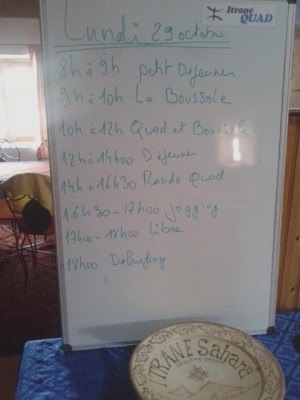 Itrane
QUAD
Lundi 29 octobre
8h à 9h petit Dejeuner
9h à 10h La Boussole
10h à 12h Quad et Boussole
12h à 14h00 Dejeuner
14h à 16h30 Rando Quad
16h30-17h00 jogging
17h00-18h00 Libre
18h00 Debriefing
ITRANE Sahara